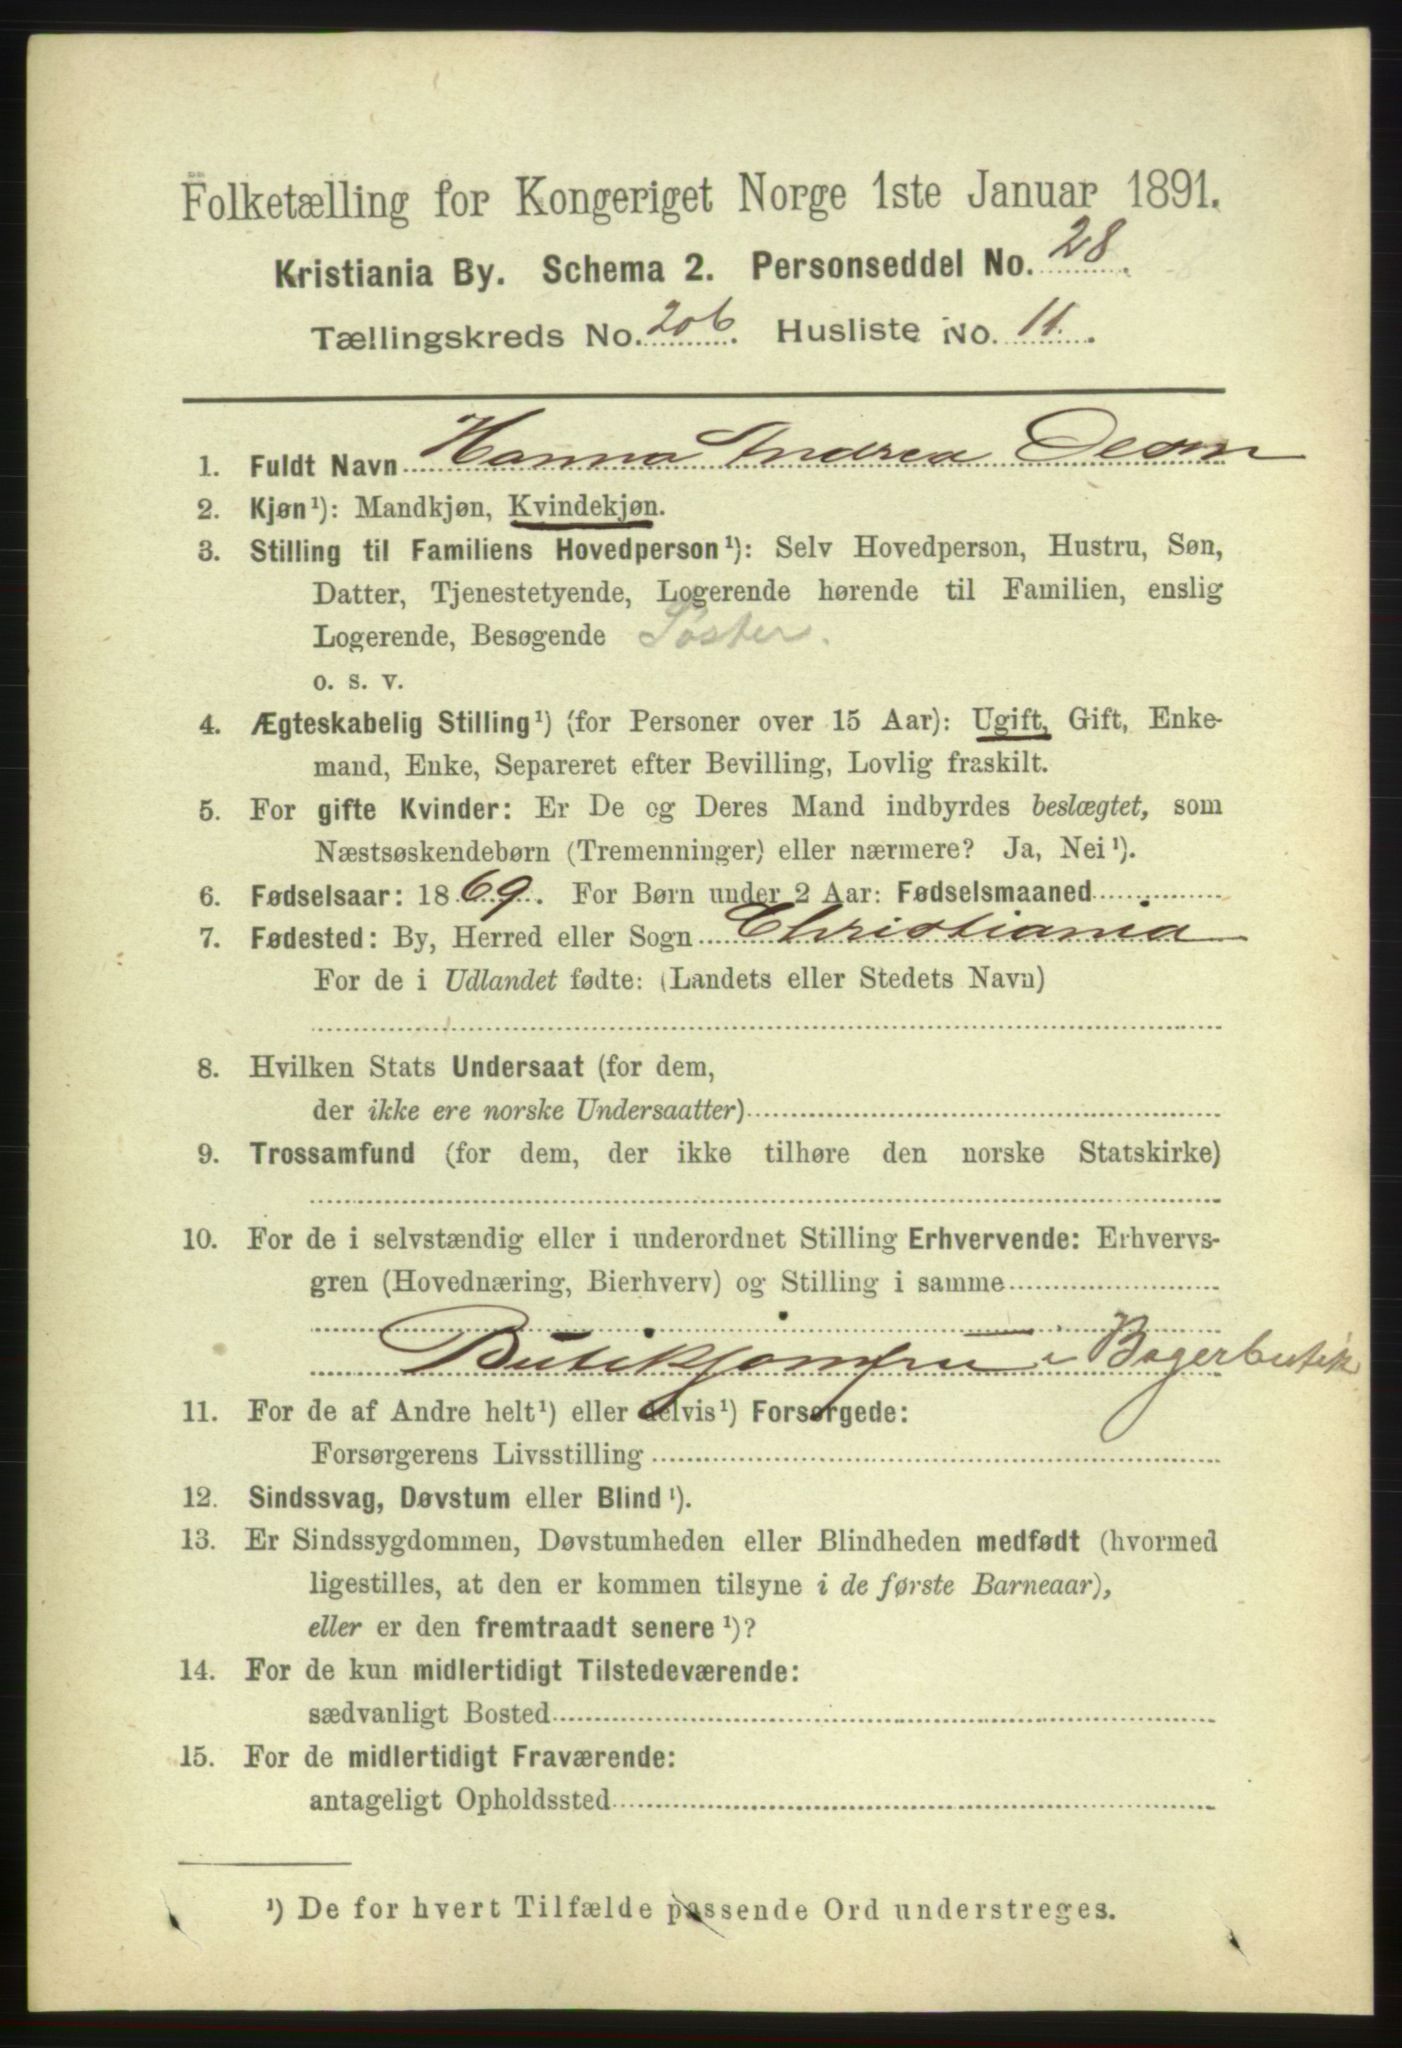 Folketælling for Kongeriget Norge 1ste Januar 1891.
Kristiania By. Schema 2. Personseddel No. 28.
Tællingskreds No. 206. Husliste No. 11.
1. Fuldt Navn Hanna Andrea
2. Kjøn¹): Mandkjøn, Kvindekjøn.
3. Stilling til Familiens Hovedperson¹): Selv Hovedperson, Hustru, Søn,
Datter, Tjenestetyende, Logerende hørende til Familien, enslig
Logerende, Besøgende Søster.
o. s. v.
4. Ægteskabelig Stilling¹) (for Personer over 15 Aar): Ugift, Gift, Enke-
mand, Enke, Separeret efter Bevilling, Lovlig fraskilt.
5. For gifte Kvinder: Er De og Deres Mand indbyrdes beslægtet, som
Næstsøskendebørn (Tremenninger) eller nærmere? Ja, Nei¹).
6. Fødselsaar: 1869. For Børn under 2 Aar: Fødselsmaaned
7. Fødested: By, Herred eller Sogn Christiania
For de i Udlandet fødte: (Landets eller Stedets Navn)
8. Hvilken Stats Undersaat (for dem,
der ikke ere norske Undersaatter)
9. Trossamfund (for dem, der ikke tilhøre den norske Statskirke)
10. For de i selvstændig eller i underordnet Stilling Erhvervende: Erhvervs-
gren (Hovednæring, Bierhverv) og Stilling i samme
Butikjomfru i Bagerbutik
11. For de af Andre helt¹) eller delvis¹) Forsørgede:
Forsørgerens Livsstilling
12. Sindssvag, Døvstum eller Blind¹).
13. Er Sindssygdommen, Døvstumheden eller Blindheden medfødt (hvormed
ligestilles, at den er kommen tilsyne i de første Barneaar),
eller er den fremtraadt senere¹)?
14. For de kun midlertidigt Tilstedeværende:
sædvanligt Bosted
15. For de midlertidigt Fraværende:
antageligt Opholdssted
¹) De for hvert Tilfælde passende Ord understreges.